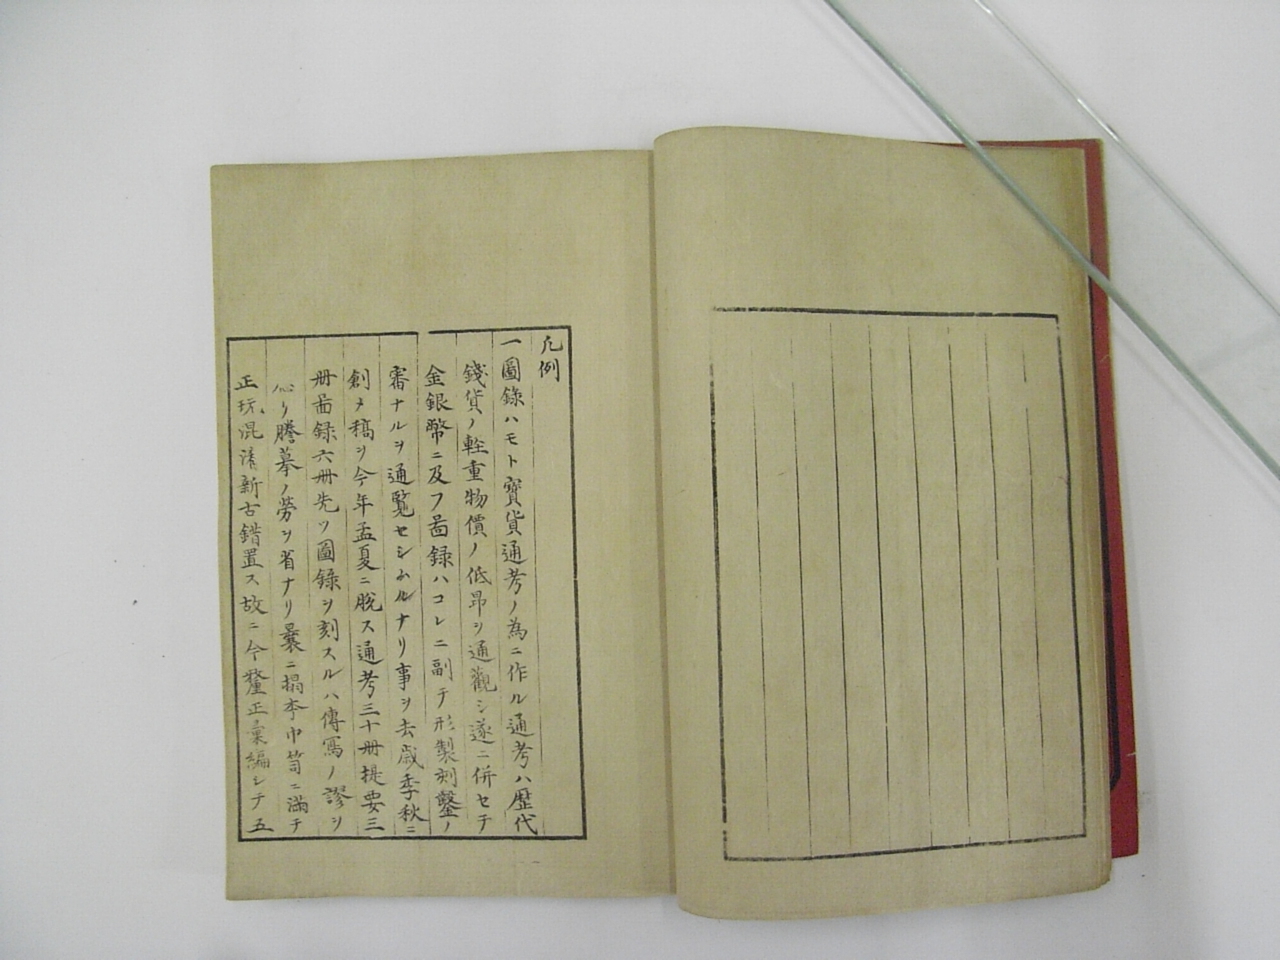 凡例
一圖錄ハモト寶貨通考ノ為ニ作ル通考ハ歷代
錢貨ノ輊重物價ノ低昂ヲ通觀シ遂ニ併セテ
金銀幣ニ及フ啚録ハコレニ副テ形製刻鑿ノ
審ナルヲ通覧セシムルナリ事ヲ去歳季秋ニ
創メ稿ヲ今年孟夏ニ脫ス通考三十冊提要三
冊啚録六冊先ツ圖錄ヲ刻スルハ傳寫ノ謬ヲ
リ謄摹ノ勞ヲ省ナリ曩ニ搨本巾笥ニ満テ
正玩混淆新古錯置ス故ニ今釐正彙編シテ五